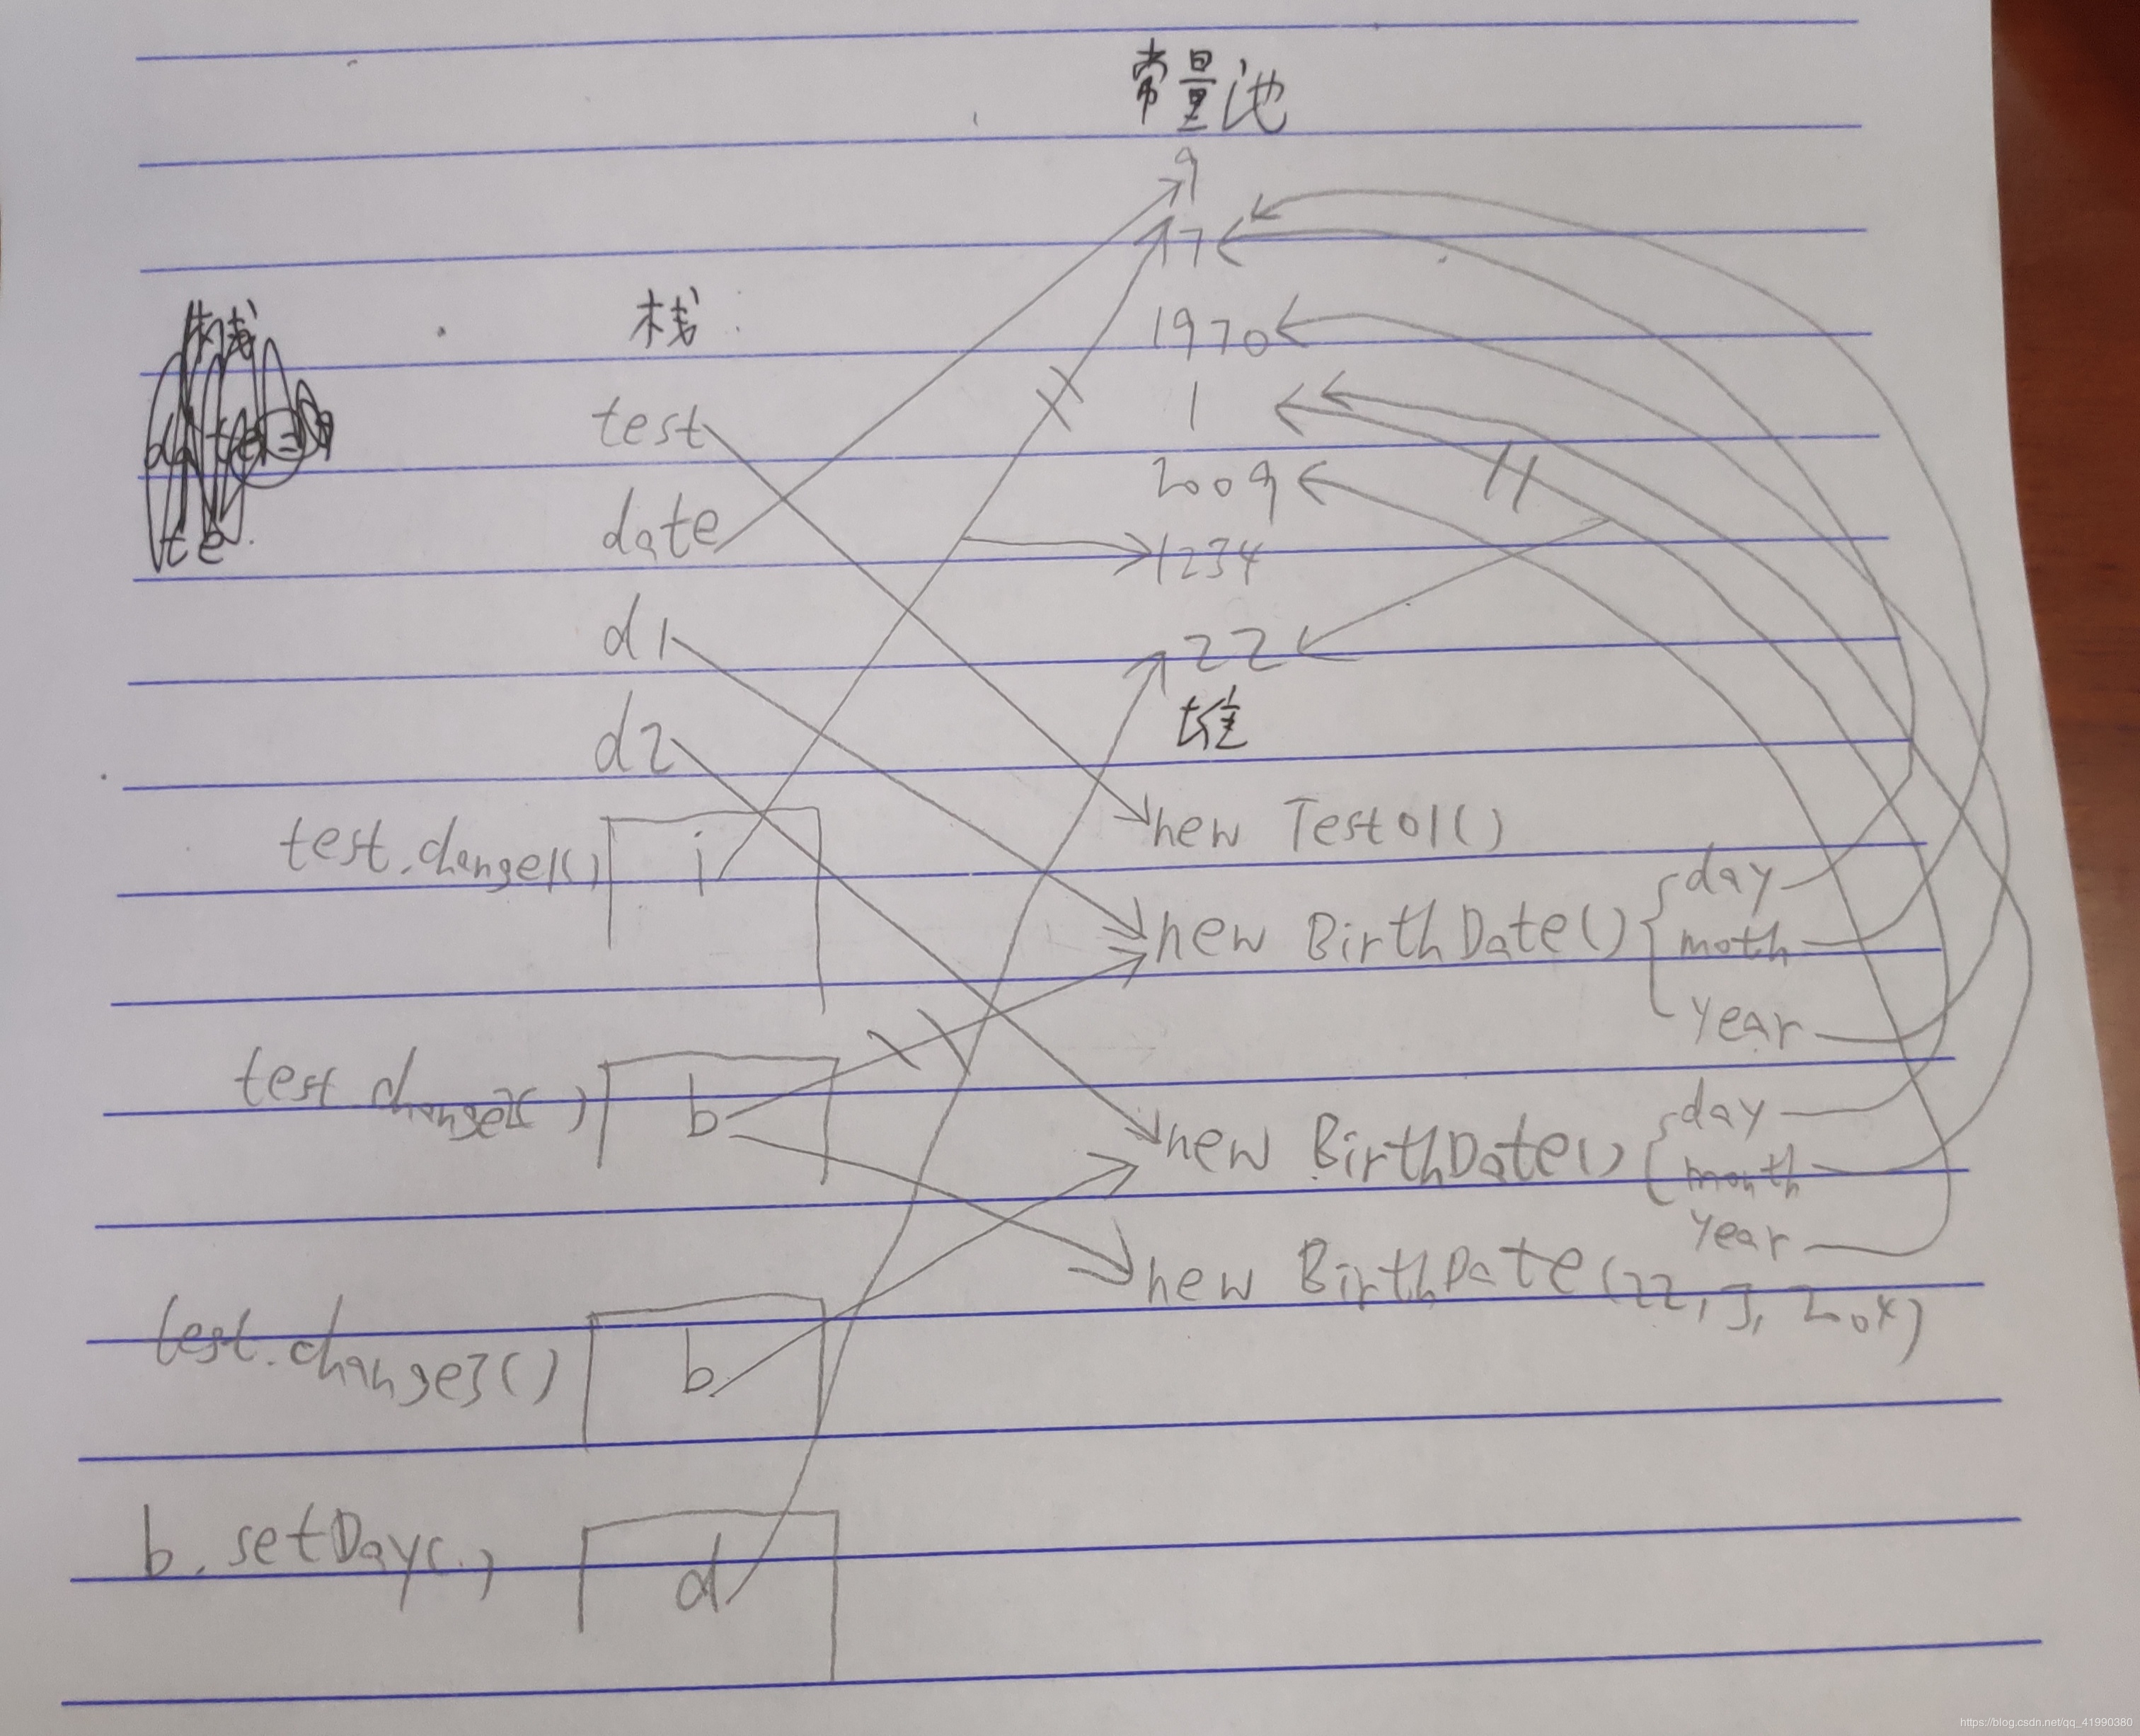 常量池
9
7
栈
1970
test
1
2009
date
1234
d1
22
堆
d2
new Test01()
test.change1()
i
day
new BirthDate()
moth
year
test.change2()
b
day
new BirthDate()
month
year
new BirthDate(22,
test.change3()
b
b.setDay()
d
https://blog.csdn.net/qq_41990380